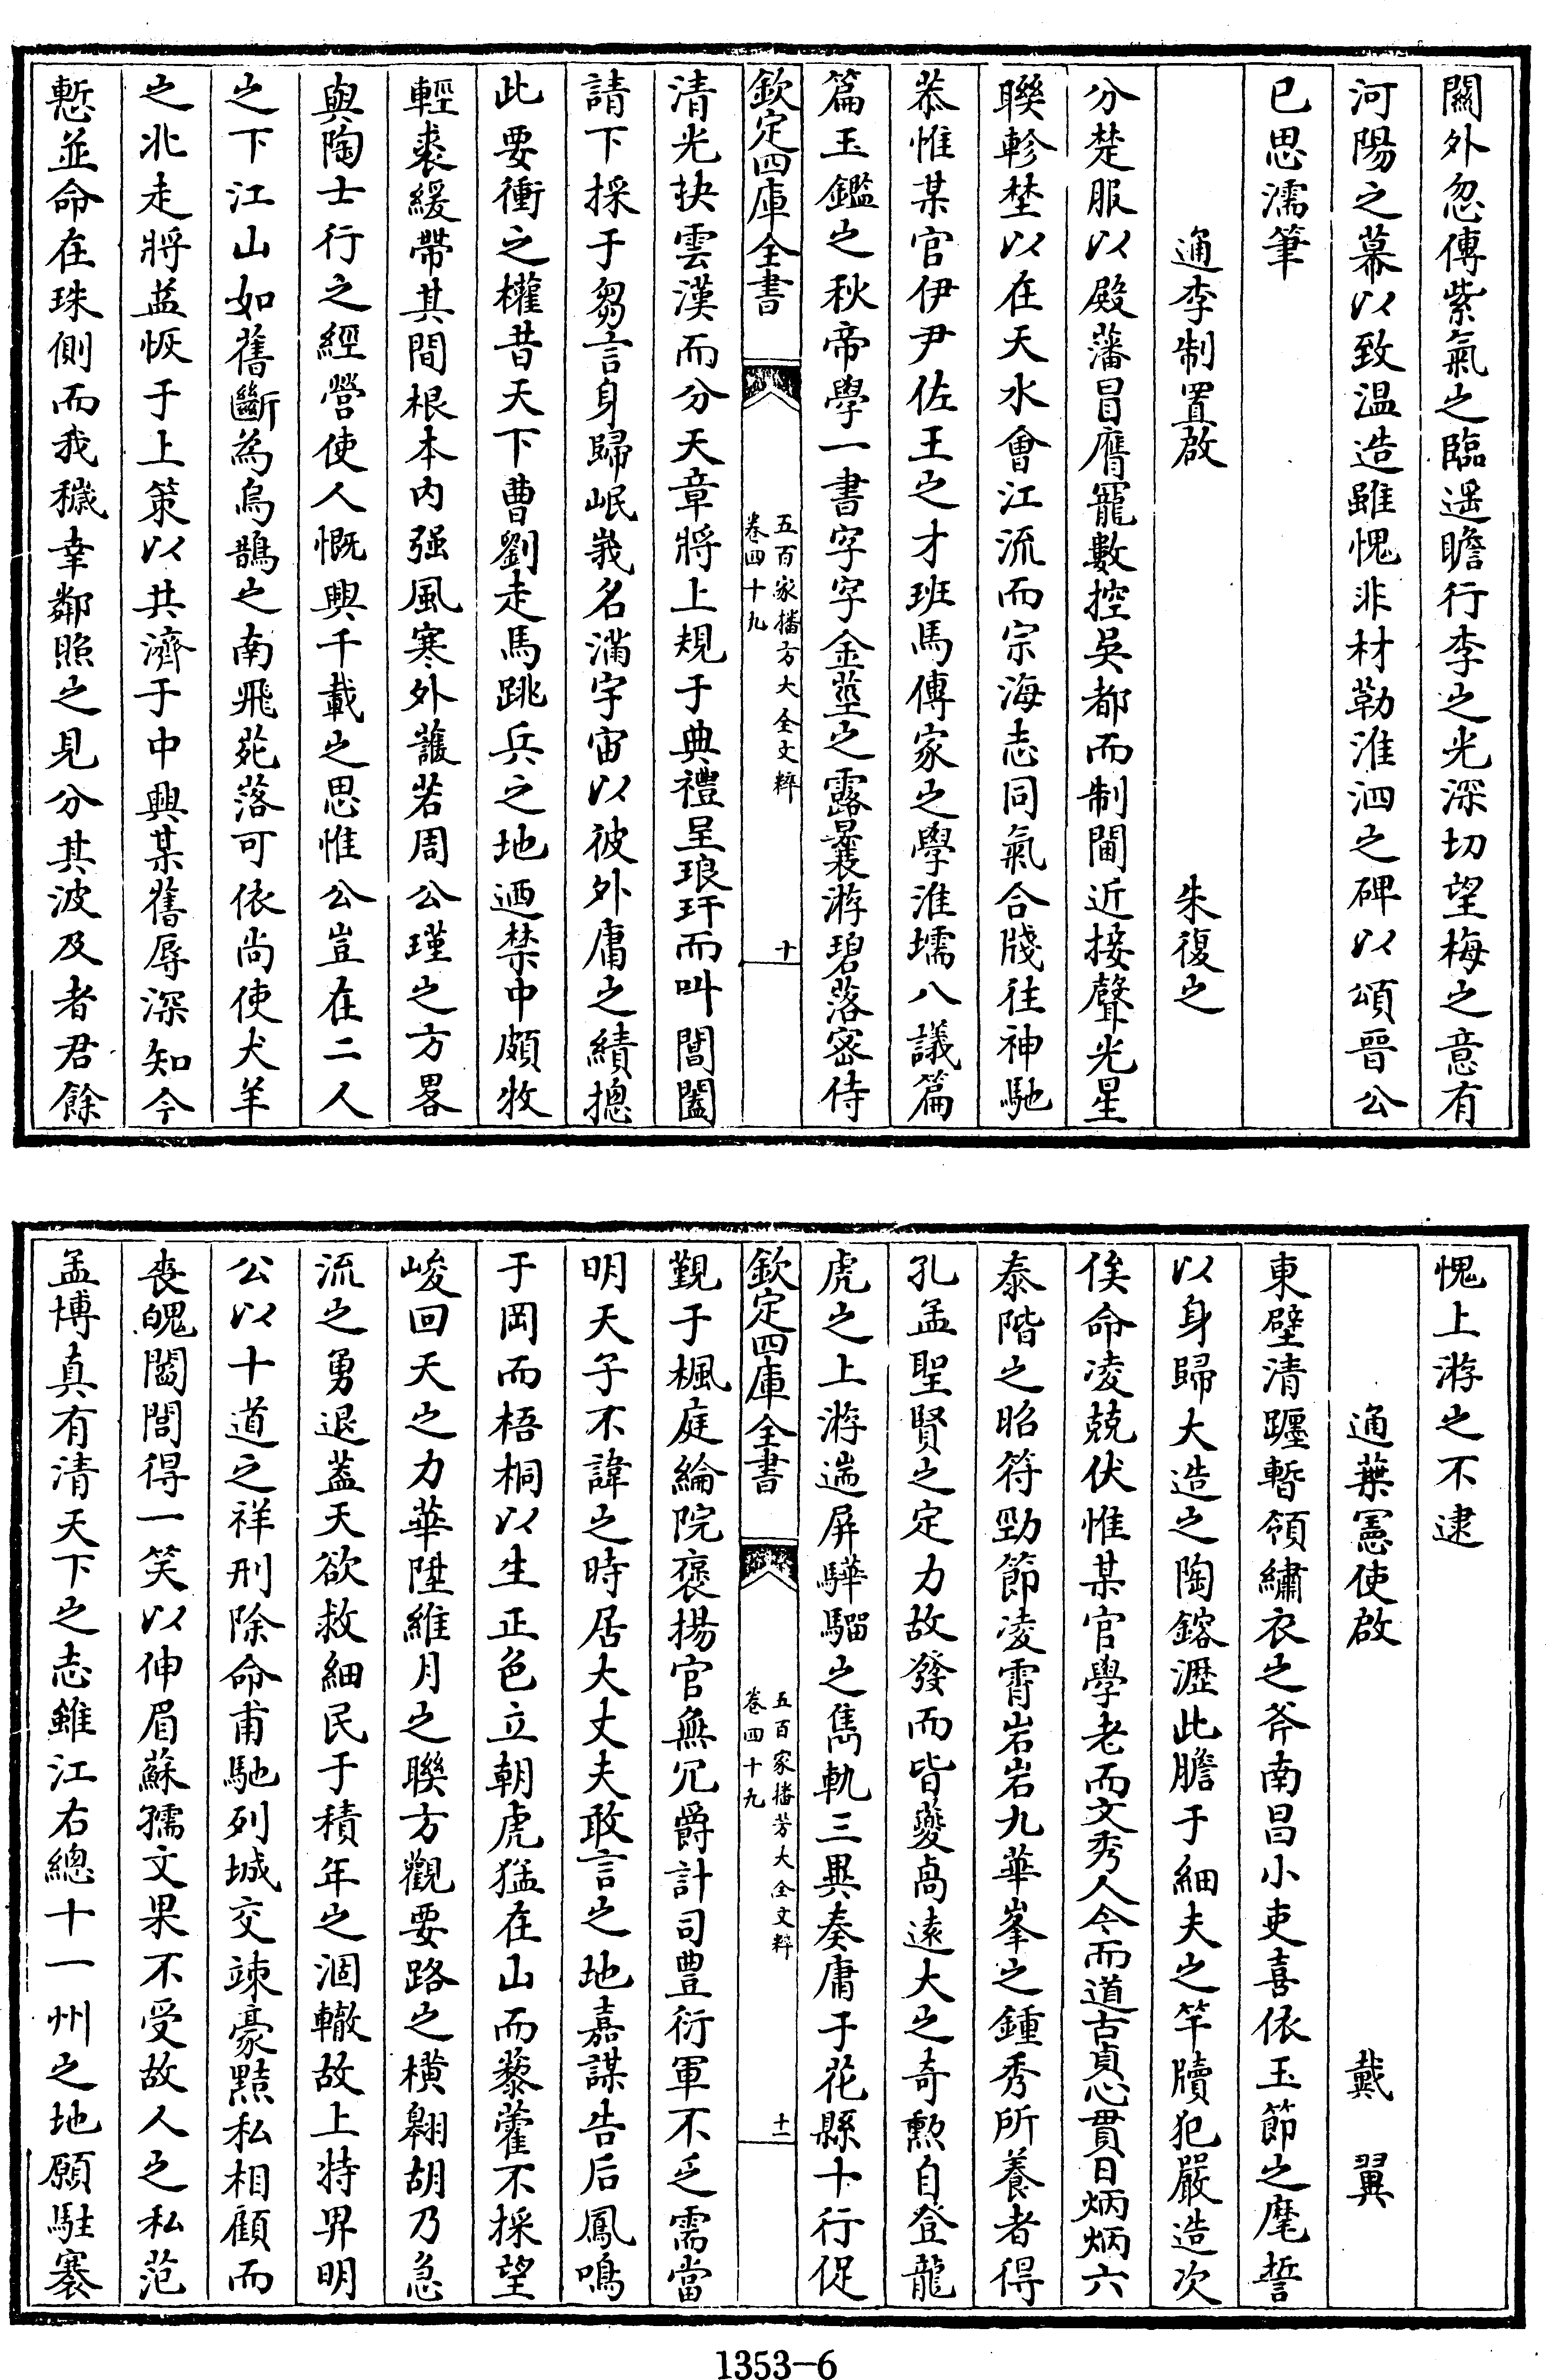 關外忽傳紫氣之臨遥瞻行李之光深切望梅之意有
河陽之幕以致温造雖愧非材勒淮泗之碑以頌晉公
已思濡筆
通李制置啟 朱復之
分楚服以殿藩冒膺寵數控吳都而制閫近接聲光星
聯軫埜以在天水會江流而宗海志同氣合牋往神馳
恭惟某官伊尹佐王之才班馬傳家之學淮壖八議篇
篇玉鑑之秋帝學一書字字金莖之露曩游碧落密侍
欽定四庫全書 五百家播芳大全文粹 卷四十九 十
清光抉雲漢而分天章將上規于典禮呈琅玕而叫閶闔
請下採于芻言身歸岷峩名滿宇宙以彼外庸之績摠
此要衝之權昔天下曹劉走馬跳兵之地迺禁中頗牧
輕裘緩帶其間根本内强風寒外護若周公瑾之方畧
與陶士行之經營使人慨興千載之思惟公豈在二人
之下江山如舊斷為烏鵲之南飛茆落可依尚使犬羊
之北走將益恢于上策以共濟于中興某舊辱深知今
慙並命在珠側而我穢幸鄰照之見分其波及者君餘
愧上游之不逮
通葉憲使啟 戴翼
東壁清躔暫領繡衣之斧南昌小吏喜依玉節之麾誓
以身歸大造之陶鎔瀝此膽于細夫之竿牘犯嚴造次
俟命凌兢伏惟某官學老而文秀人今而道古貞心貫日炳炳六
泰階之昭符勁節凌霄岩岩九華峯之鍾秀所養者得
孔孟聖賢之定力故發而皆夔卨遠大之奇勲自登龍
虎之上游遄屏驊騮之雋軌三異奏庸于花縣十行促
欽定四庫全書 五百家播芳大全文粹 卷四十九 十一
覲于楓庭綸院褒揚官無冗爵計司豐衍軍不乏需當
明天子不諱之時居大丈夫敢言之地嘉謀告后鳳鳴
于岡而梧桐以生正色立朝虎猛在山而藜藿不採望
峻回天之力華陞維月之聯方觀要路之橫翱胡乃急
流之勇退蓋天欲救細民于積年之涸轍故上特畀明
公以十道之祥刑除命甫馳列城交竦豪黠私相顧而
喪魄閭閻得一笑以伸眉蘇孺文果不受故人之私范
孟博真有清天下之志雖江右總十一州之地願駐褰
1353-6